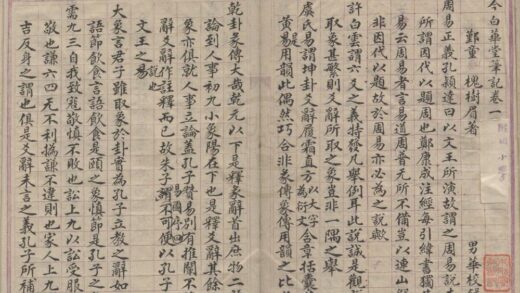 今白華堂筆記卷一
鄞童 槐樹眉著 男華校
周易正義孔穎達曰以文王所演故謂之周易說
所謂因代以題周也鄭康成注經每引緯書獨
易云周易者言易道周普无所不備豈以連山
非因代以題故於周易亦必為之說歟
許白雲謂六爻之義特發凡舉例耳此說誠是觀
取象甚繁則爻辭所取之象豈非一隅之舉
虞氏易謂坤卦爻辭履霜直方為衍文以大字合章括囊
黃易是用韻此偶然巧合非象傳象傳用韻之比
乾卦彖傳大哉乾元以下是釋彖辭首出庶物二
論到人事初九小象陽在下也是釋爻辭其餘
象亦俱就人事立論蓋孔子贊易別有推闡不
辭爻辭作註釋而已故朱子謂不可便以孔子
文王之易說也
大象言君子雖取象於卦實為孔子立教之辭如
語節飲食言語飲食是頤之象慎節即是孔子之
需九三自我致寇敬慎不敗也訟上九以訟受服
敬也謙六四无不利撝謙不違則也家人上九
吉反身之謂也俱是爻辭未言之義孔子所補